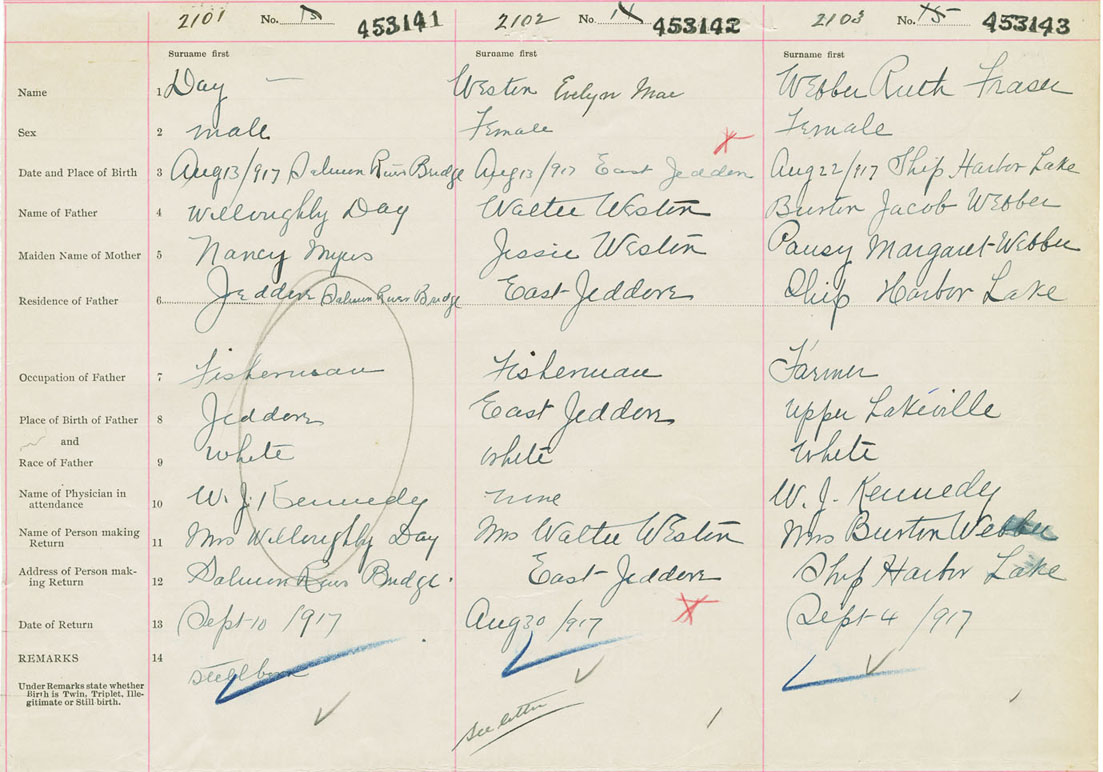 2101 No. 13 453141 2102 No. 14 453142 2103 No. 15 453143
Surname first Surname first Surname first
Name 1 Day — Weston Evelyn Mae Webber Ruth Fraser
Sex 2 male Female Female
Date and Place of Birth 3 Aug 13/917 Salmon River Bridge Aug 13/917 East Jeddore Aug 22/917 Ship Harbor Lake
Name of Father 4 Willoughby Day Walter Weston Burton Jacob Webber
Maiden Name of Mother 5 Nancy Myers Jessie Weston Pansy Margaret Webber
Residence of Father 6 Jeddore Salmon River Bridge East Jeddore Ship Harbor Lake
Occupation of Father 7 Fisherman Fisherman Farmer
Place of Birth of Father 8 Jeddore East Jeddore Upper Lakeville
and
Race of Father 9 White White White
Name of Physician in
attendance 10 W. J. Kennedy none W. J. Kennedy
Name of Person making
Return 11 Mrs Willoughby Day Mrs Walter Weston Mrs Burton Webber
Address of Person mak-
ing Return 12 Salmon River Bridge. East Jeddore Ship Harbor Lake
Date of Return 13 Sept 10 /917 Aug 30 /917 Sept 4 /917
REMARKS 14 Stillborn
Under Remarks state whether
Birth is Twin, Triplet, Ille-
gitimate or Still birth.
See letter